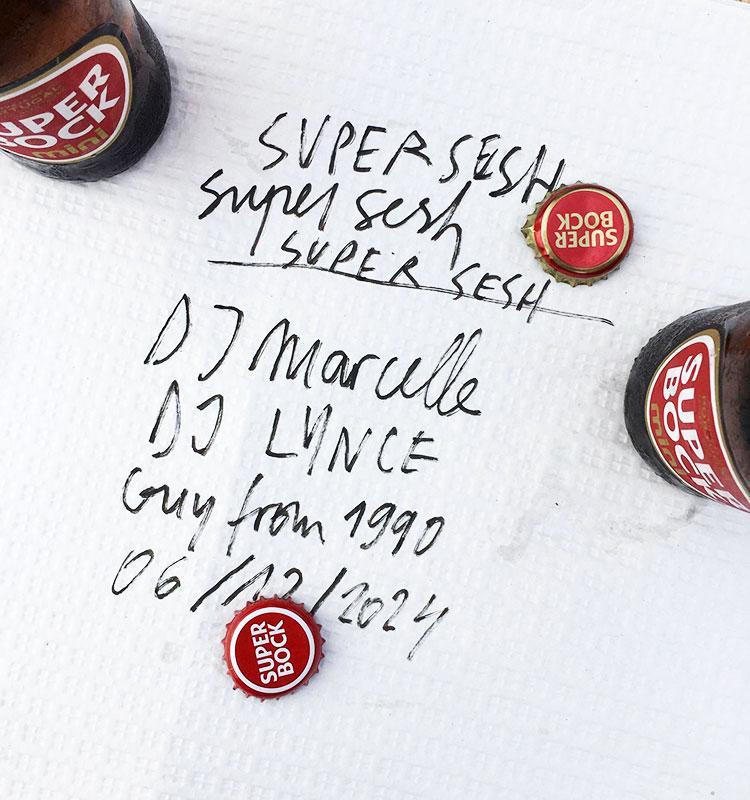 PORTUGAL
SUPER
BOCK
mini
SUPERSESH
super sesh
SUPER SESH
SUPER
BOCK
DJ Marcelle
DJ LYNCE
Guy from 1990
06/12/2024
SUPER
BOCK
mini
SUPER
BOCK